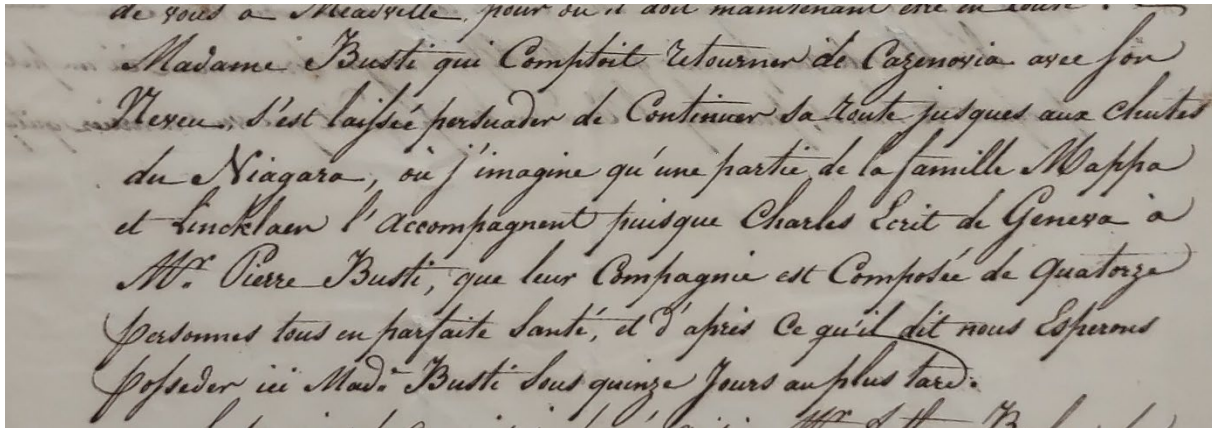 de vous a Meadville, pour où il doit maintenant être en route.
Madame Busti qui Comptoit retourner de Cazenovia avec son
Neveu, s'est laissée persuader de Continuer sa route jusques aux chutes
du Niagara, où j'imagine qu'une partie de la famille Mappa
et Lincklaen l'accompagnent puisque Charles Ecrit de Geneva à
Mr. Pierre Busti, que leur Compagnie est Composée de quatorze
personnes tous en parfaite Santé, et d'après Ce qu'il dit nous Esperons
posseder ici Made. Busti Sous quinze Jours au plus tard.